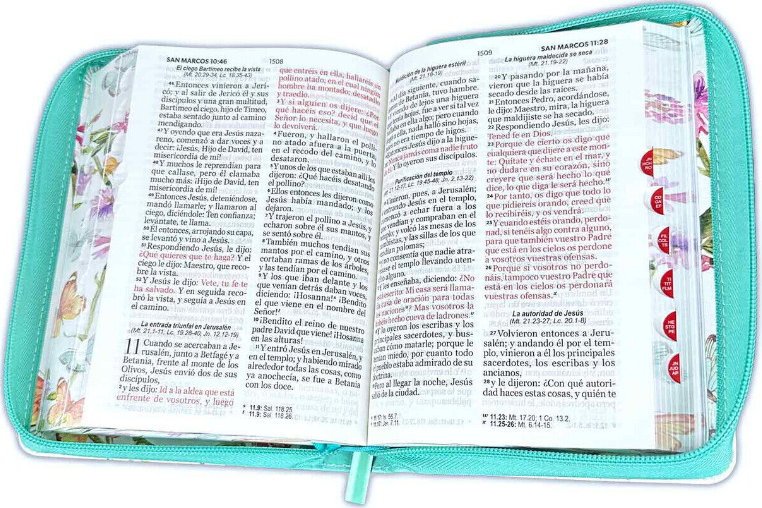 SAN MARCOS 10:46
1508
El ciego Bartimeo recibe la vista
(Mt. 20.29-34, Lc. 18.35-43)
46 Entonces vinieron a Jeri-
có; y al salir de Jericó él y sus
discípulos y una gran multitud,
Bartimeo el ciego, hijo de Timeo,
estaba sentado junto al camino
mendigando.
47 Y oyendo que era Jesús naza-
reno, comenzó a dar voces y a
decir: ¡Jesús, Hijo de David, ten
misericordia de mí!
48 Y muchos le reprendían para
que callase, pero él clamaba
mucho más: ¡Hijo de David, ten
misericordia de mí!
49 Entonces Jesús, deteniéndose,
mandó llamarle; y llamaron al
ciego, diciéndole: Ten confianza;
levántate, te llama.
50 Él entonces, arrojando su capa,
se levantó y vino a Jesús.
51 Respondiendo Jesús, le dijo:
¿Qué quieres que te haga? Y el
ciego le dijo: Maestro, que reco-
bre la vista.
52 Y Jesús le dijo: Vete, tu fe te
ha salvado. Y en seguida reco-
bró la vista, y seguía a Jesús en
el camino.
La entrada triunfal en Jerusalén
(Mt. 21.1-11, Lc. 19.28-40, Jn. 12.12-19)
11 Cuando se acercaban a Je-
rusalén, junto a Betfagé y a
Betania, frente al monte de los
Olivos, Jesús envió dos de sus
discípulos,
2 y les dijo: Id a la aldea que está
enfrente de vosotros, y luego
que entréis en ella, hallaréis un
pollino atado, en el cual ningún
hombre ha montado; desatadlo
y traedlo.
3 Y si alguien os dijere: ¿Por
qué hacéis eso? decid que el
Señor lo necesita, y que luego
lo devolverá.
4 Fueron, y hallaron el pollino
atado afuera a la puerta,
en el recodo del camino, y lo
desataron.
5 Y unos de los que estaban allí les
dijeron: ¿Qué hacéis desatando
el pollino?
6 Ellos entonces les dijeron como
Jesús había mandado; y los
dejaron.
7 Y trajeron el pollino a Jesús, y
echaron sobre él sus mantos, y
se sentó sobre él.
8 También muchos tendían sus
mantos por el camino, y otros
cortaban ramas de los árboles,
y las tendían por el camino.
9 Y los que iban delante y los
que venían detrás daban voces,
diciendo: ¡Hosanna!* ¡Bendito
el que viene en el nombre del
Señor!
10 ¡Bendito el reino de nuestro
padre David que viene! ¡Hosanna
en las alturas!
11 Y entró Jesús en Jerusalén, y
en el templo; y habiendo mirado
alrededor todas las cosas, como
ya anochecía, se fue a Betania
con los doce.
11.9: Sal. 118.25.
11.9: Sal. 118.26.
1509
SAN MARCOS 11:28
Maldición de la higuera estéril
(Mt. 21.18-19)
al día siguiente, cuando sa-
de Betania, tuvo hambre.
de lejos una higuera
hojas, fue a ver si tal vez
en ella algo; pero cuando
ella, nada halló sino hojas,
era tiempo de higos.
Jesús dijo a la higue-
jamás coma nadie fruto
oyeron sus discípulos.
Purificación del templo
(Mt. 21.12-17, Lc. 19.45-48, Jn. 2.13-22)
pues, a Jerusalén;
entrando Jesús en el templo,
a echar fuera a los
vendían y compraban en el
y volcó las mesas de los
y las sillas de los que
palomas;
consentía que nadie atra-
el templo llevando uten-
enseñaba, diciendo: ¿No
Mi casa será llamada
casa de oración para todas
naciones? Mas vosotros la
hecho cueva de ladrones.
oyeron los escribas y los
principales sacerdotes, y bus-
cómo matarle; porque le
miedo, por cuanto todo
pueblo estaba admirado de su
doctrina.
al llegar la noche, Jesús
de la ciudad.
11.17: Is. 56.7.
11.17: Jer. 7.11.
La higuera maldecida se seca
(Mt. 21.19-22)
20 Y pasando por la mañana,
vieron que la higuera se había
secado desde las raíces.
21 Entonces Pedro, acordándose,
le dijo: Maestro, mira, la higuera
que maldijiste se ha secado.
22 Respondiendo Jesús, les dijo:
Tened fe en Dios.
23 Porque de cierto os digo que
cualquiera que dijere a este mon-
te: Quítate y échate en el mar, y
no dudare en su corazón, sino
creyere que será hecho lo que
dice, lo que diga le será hecho.
24 Por tanto, os digo que todo lo
que pidiereis orando, creed que
lo recibiréis, y os vendrá.
25 Y cuando estéis orando, perdo-
nad, si tenéis algo contra alguno,
para que también vuestro Padre
que está en los cielos os perdone
a vosotros vuestras ofensas.
26 Porque si vosotros no perdo-
náis, tampoco vuestro Padre que
está en los cielos os perdonará
vuestras ofensas.
La autoridad de Jesús
(Mt. 21.23-27; Lc. 20.1-8)
27 Volvieron entonces a Jerusa-
lén; y andando él por el tem-
plo, vinieron a él los principales
sacerdotes, los escribas y los
ancianos,
28 y le dijeron: ¿Con qué autori-
dad haces estas cosas, y quién te
11.23: Mt. 17.20; 1 Co. 13.2.
11.25-26: Mt. 6.14-15.